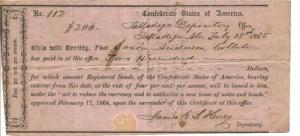 No. 112 Confederate States of America.
$200 Talladega Depository Office,
Talladega Ala July 18th 186
This will Certify, That
has paid in at this office Two Hundred
Dollars,
for which amount Registered Bonds, of the Confederate States of America, bearing
interest from this date, at the rate of four per cent per annum, will be issued to him,
under the "act to reduce the currency and to authorize a new issue of notes and bonds,"
approved February 17, 1864, upon the surrender of this Certificate at this office.
James